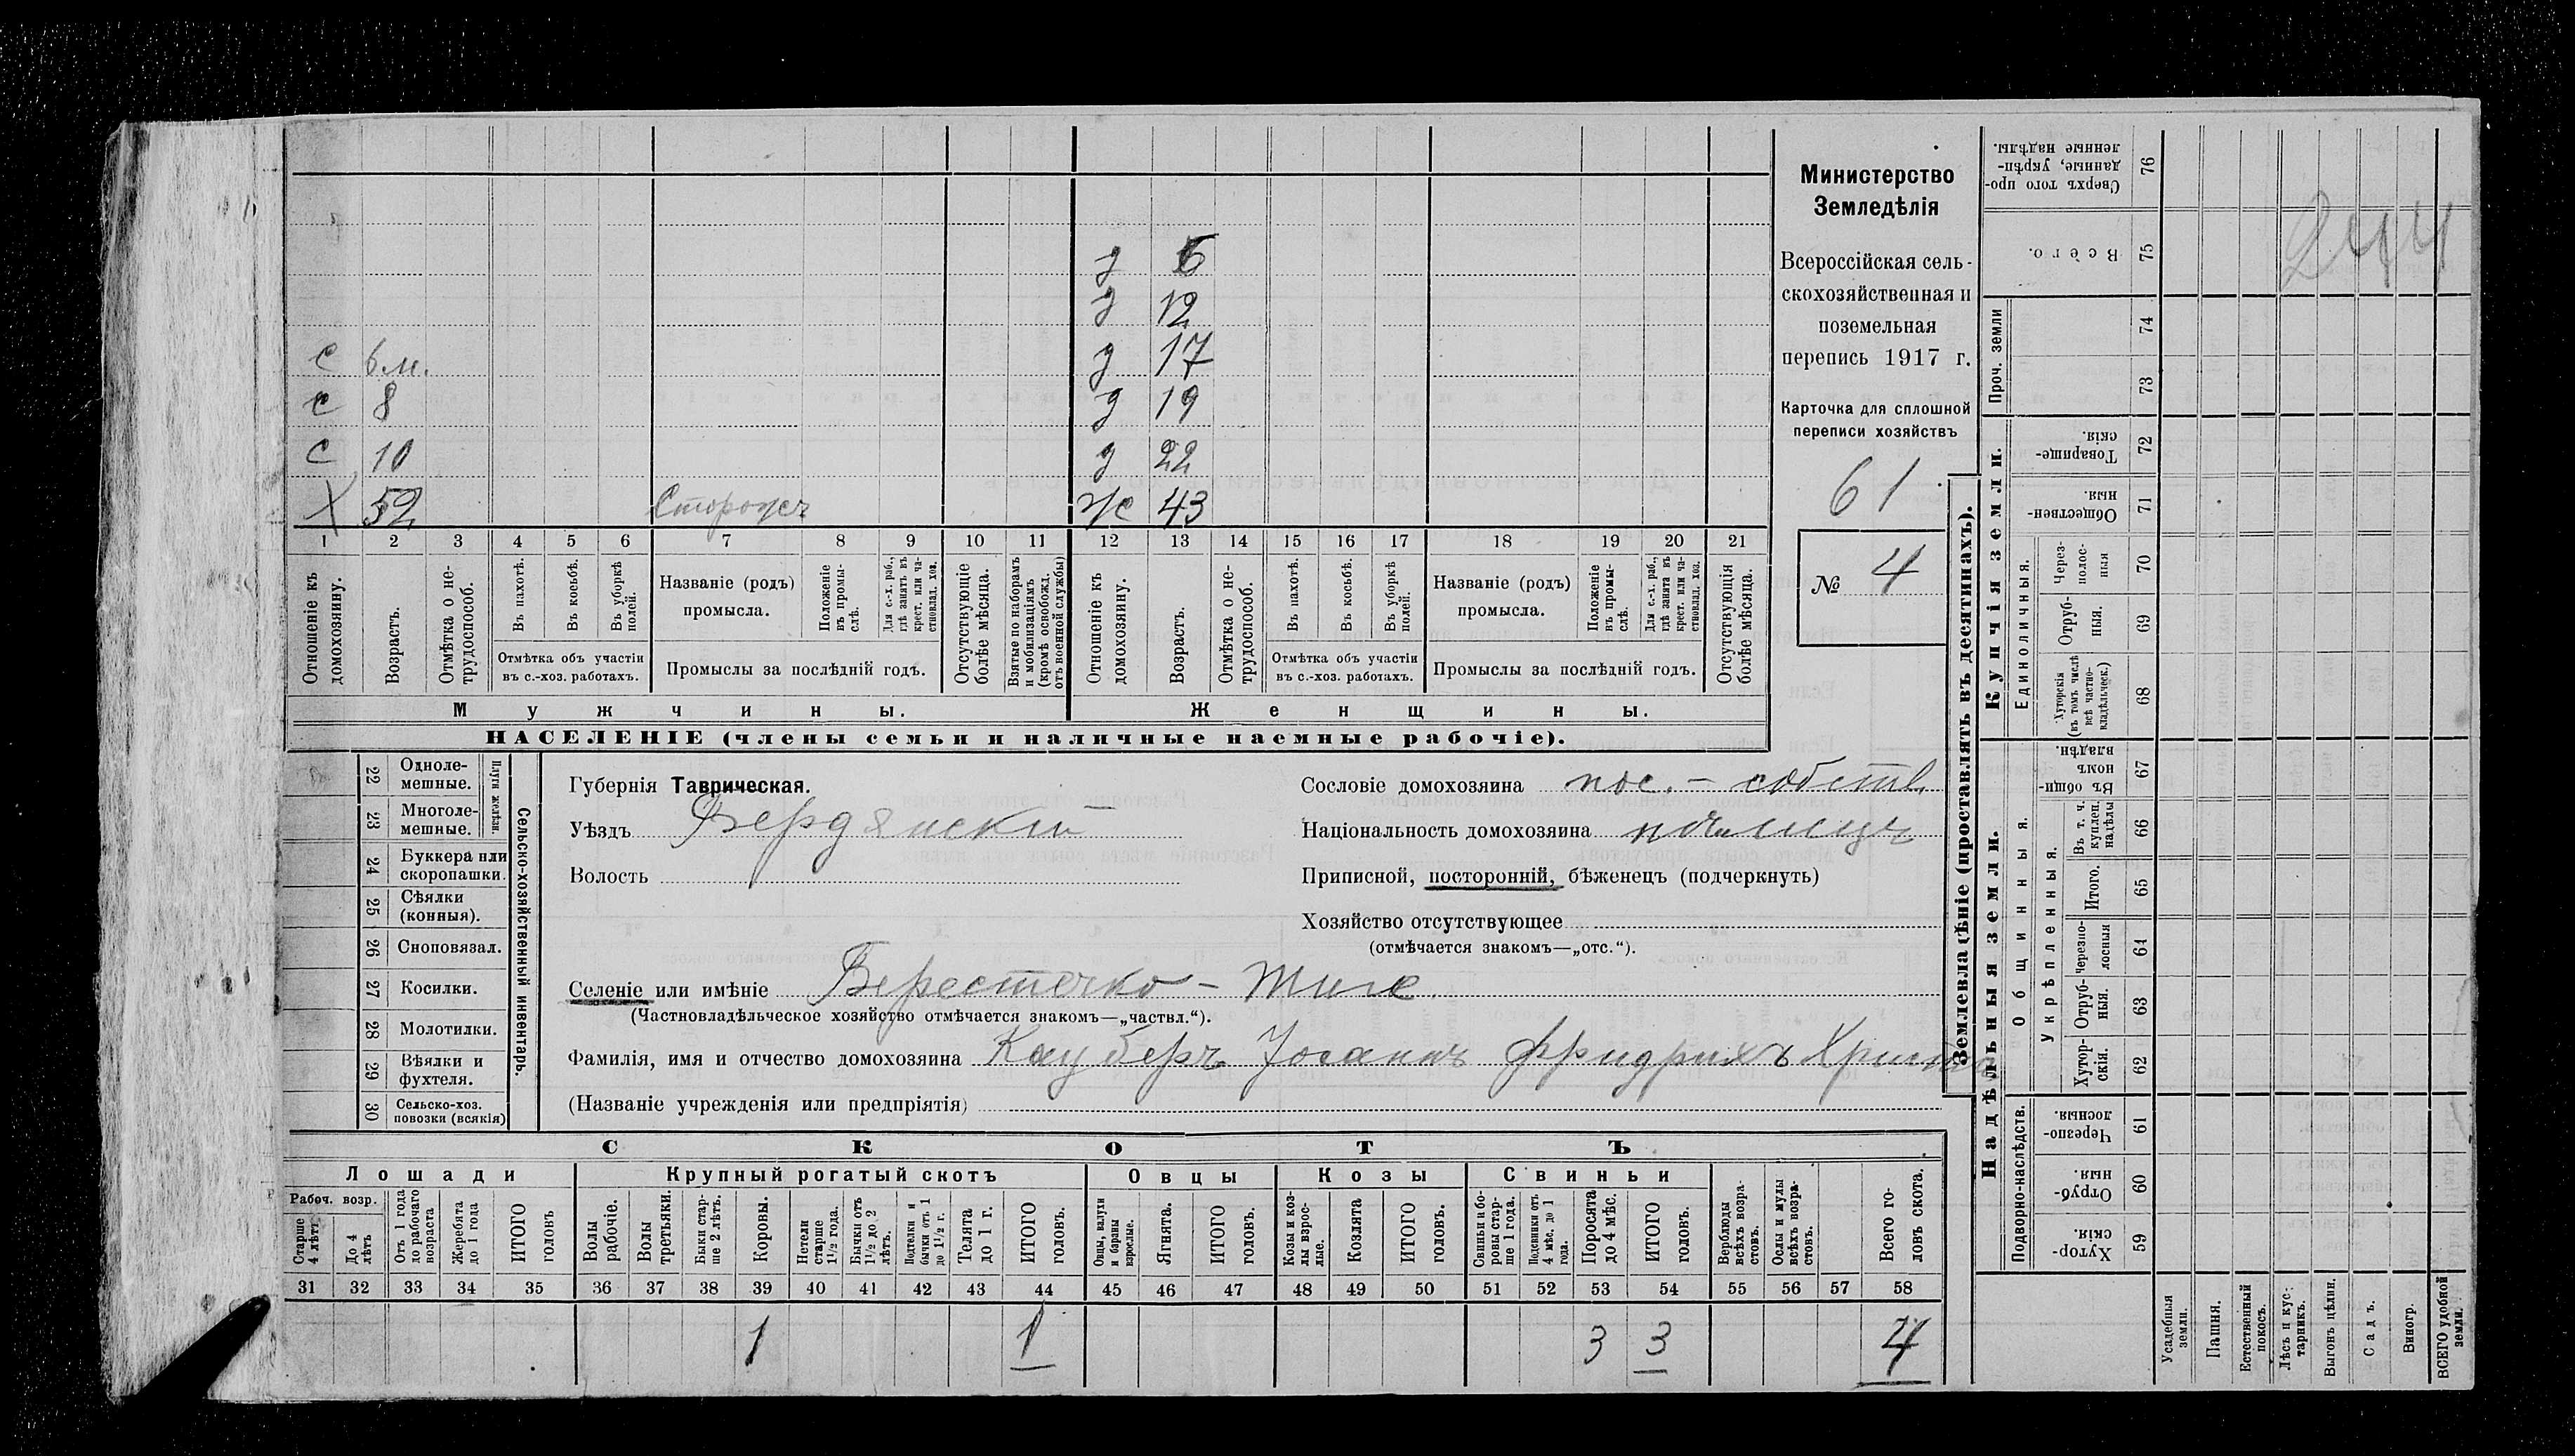 76 Сверхъ того проданные, укрѣпленные надѣлы.
75 Всего.
244
Проч. земли
74
73
Купчія земли.
72 Товарищескія.
71 Общественныя.
Единоличныя.
70 Черезполосныя
69 Отрубныя.
68 Хуторскія (въ томъ числѣ всѣ частновладѣльческ.)
Землевладѣніе (проставлять въ десятинахъ).
Надѣльныя земли.
Общинныя.
67 Въ общинномъ владѣн.
Укрѣпленныя.
66 Въ т. ч. куплен. надѣлы
65 Итого.
64 Черезполосныя
63 Отрубныя.
62 Хуторскія.
Подворно-наслѣдств.
61 Черезполосныя.
60 Отрубныя.
59 Хуторскія.
Усадебныя земли.
Пашня.
Естественный покосъ.
Лѣсъ и кустарникъ.
Выгонъ цѣлин.
Садъ.
Виногр.
ВСЕГО удобной земли.
Министерство
Земледѣлія
Всероссійская сель-
скохозяйственная и
поземельная
перепись 1917 г.
Карточка для сплошной
переписи хозяйствъ
61
№ 4
д 6
д 12
с 6 м. д 17
с 8 д 19
с 10 д 22
Х 52 Сторожъ ж 43
1 2 3 4 5 6 7 8 9 10 11 12 13 14 15 16 17 18 19 20 21
Отношеніе къ домохозяину.
Возрастъ.
Отмѣтка о нетрудоспособ.
Въ пахотѣ.
Въ косьбѣ.
Въ уборкѣ полей.
Отмѣтка объ участіи въ с.-хоз. работахъ.
Названіе (родъ) промысла.
Положеніе въ промыслѣ.
Для с.-х. раб., гдѣ занятъ въ крест. или частновлад. хоз.
Промыслы за послѣдній годъ.
Отсутствующіе болѣе мѣсяца.
Взятые по наборамъ и мобилизаціямъ (кромѣ освобожд. отъ военной службы)
Отношеніе къ домохозяину.
Возрастъ.
Отмѣтка о нетрудоспособ.
Въ пахотѣ.
Въ косьбѣ.
Въ уборкѣ полей.
Отмѣтка объ участіи въ с.-хоз. работахъ.
Названіе (родъ) промысла.
Положеніе въ промыслѣ.
Для с.-х. раб., гдѣ занята въ крест. или частновлад. хоз.
Промыслы за послѣдній годъ.
Отсутствующія болѣе мѣсяца.
Мужчины. Женщины.
НАСЕЛЕНІЕ (члены семьи и наличные наемные рабочіе).
Сельско-хозяйственный инвентарь.
Плуги желѣзн.
22 Однолемешные.
23 Многолемешные.
24 Буккера или скоропашки.
25 Сѣялки (конныя).
26 Сноповязал.
27 Косилки.
28 Молотилки.
29 Вѣялки и фухтеля.
30 Сельско-хоз. повозки (всякія)
Губернія Таврическая.
Уѣздъ Бердянскій
Волость
Сословіе домохозяина пос. - собств.
Національность домохозяина нѣмецъ
Приписной, посторонній, бѣженецъ (подчеркнуть)
Хозяйство отсутствующее
(отмѣчается знакомъ—„отс.“).
Селеніе или имѣніе Берестечко -
(Частновладѣльческое хозяйство отмѣчается знакомъ—„частвл.“).
Фамилія, имя и отчество домохозяина Кауберъ Иоганнъ Фридрихъ
(Названіе учрежденія или предпріятія)
СКОТЪ
Лошади Крупный рогатый скотъ Овцы Козы Свиньи
Рабоч. возр.
Старше 4 лѣтъ
До 4 лѣтъ
Отъ 1 года до рабочаго возраста
Жеребята до 1 года
ИТОГО головъ
Волы рабочіе.
Волы третьяки.
Быки старше 2 лѣтъ.
Коровы.
Нетели старше 1 1/2 года.
Бычки отъ 1 1/2 до 2 лѣтъ.
Подтелки и бычки отъ 1 до 1 1/2 г.
Телята до 1 г.
ИТОГО головъ.
Овцы, валухи и бараны взрослые.
Ягнята.
ИТОГО головъ.
Козы и козлы взрослые.
Козлята
ИТОГО головъ.
Свиньи и боровы старше 1 года.
Подсвинки отъ 4 мѣс. до 1 года.
Поросята до 4 мѣс.
ИТОГО головъ.
Верблюды всѣхъ возрастовъ.
Ослы и мулы всѣхъ возрастовъ.
Всего головъ скота.
31 32 33 34 35 36 37 38 39 40 41 42 43 44 45 46 47 48 49 50 51 52 53 54 55 56 57 58
1 1 3 3 4